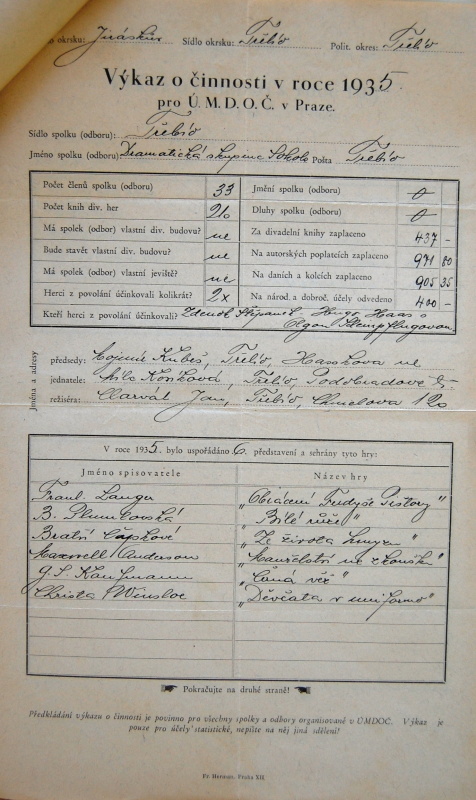 okrsku: Jiráskův Sídlo okrsku: Třebíč Polit. okres: Třebíč
Výkaz o činnosti v roce 1935.
pro Ú. M. D. O. Č. v Praze.
Sídlo spolku (odboru): Třebíč
Jméno spolku (odboru) Dramatická skupina Sokola Pošta Třebíč
Počet členů spolku (odboru) 33 Jmění spolku (odboru) 0
Počet knih div. her 210 Dluhy spolku (odboru) 0
Má spolek (odbor) vlastní div. budovu? ne Za divadelní knihy zaplaceno 437 –
Bude stavět vlastní div. budovu? ne Na autorských poplatcích zaplaceno 971 80
Má spolek (odbor) vlastní jeviště? ne Na daních a kolcích zaplaceno 905 35
Herci z povolání účinkovali kolikrát? 2x Na národ. a dobroč. účely odvedeno 400 –
Kteří herci z povolání účinkovali? Zdeněk Štěpánek, Hugo Haas s
Olgou Scheinpflugovou.
Jména a adresy
předsedy: Kubeš, Třebíč,
jednatele: Třebíč,
režiséra: Charvát Jan, Třebíč, Chmelova 120
V roce 1935. bylo uspořádáno 6 představení a sehrány tyto hry:
Jméno spisovatele Název hry
Frant. Langer „Obrácení Ferdyše Pištory"
B. „Bílé růže"
Bratři Čapkové „Ze života hmyzu"
Maxwell Anderson „Manželství na zkoušku"
G. S. Kaufmann „Čína věž"
Christa Winsloe „Děvčata v uniformě"
Pokračujte na druhé straně!
Předkládání výkazu o činnosti je povinno pro všechny spolky a odbory organisované v ÚMDOČ. Výkaz je
pouze pro účely statistické, nepište na něj jiná sdělení!
Fr. Herman, Praha XII.